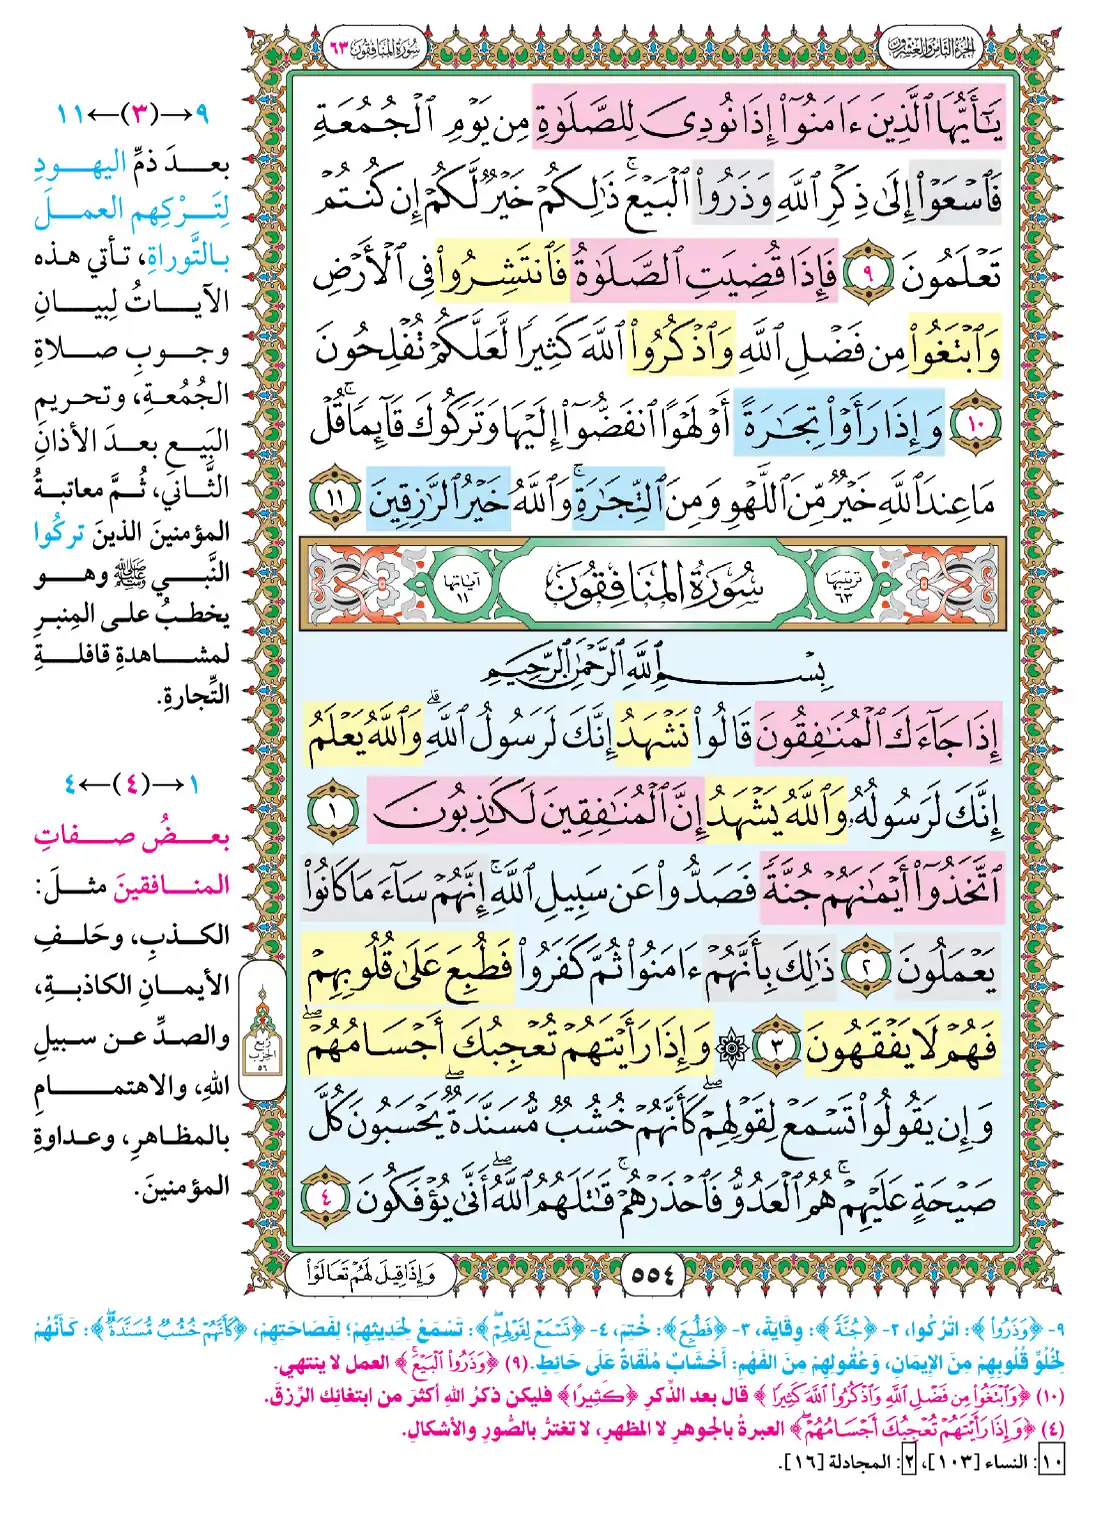 الجزء الثامن والعشرون
سورة المنافقون ٦٣
يَٰٓأَيُّهَا ٱلَّذِينَ ءَامَنُوٓا۟ إِذَا نُودِىَ لِلصَّلَوٰةِ مِن يَوْمِ ٱلْجُمُعَةِ
فَٱسْعَوْا۟ إِلَىٰ ذِكْرِ ٱللَّهِ وَذَرُوا۟ ٱلْبَيْعَ ۚ ذَٰلِكُمْ خَيْرٌ لَّكُمْ إِن كُنتُمْ
تَعْلَمُونَ ٩ فَإِذَا قُضِيَتِ ٱلصَّلَوٰةُ فَٱنتَشِرُوا۟ فِى ٱلْأَرْضِ
وَٱبْتَغُوا۟ مِن فَضْلِ ٱللَّهِ وَٱذْكُرُوا۟ ٱللَّهَ كَثِيرًا لَّعَلَّكُمْ تُفْلِحُونَ
١٠ وَإِذَا رَأَوْا۟ تِجَٰرَةً أَوْ لَهْوًا ٱنفَضُّوٓا۟ إِلَيْهَا وَتَرَكُوكَ قَآئِمًا ۚ قُلْ
مَا عِندَ ٱللَّهِ خَيْرٌ مِّنَ ٱللَّهْوِ وَمِنَ ٱلتِّجَٰرَةِ ۚ وَٱللَّهُ خَيْرُ ٱلرَّٰزِقِينَ ١١
ترتيبها ٦٣
سورة المنافقون
آياتها ١١
بِسْمِ ٱللَّهِ ٱلرَّحْمَٰنِ ٱلرَّحِيمِ
إِذَا جَآءَكَ ٱلْمُنَٰفِقُونَ قَالُوا۟ نَشْهَدُ إِنَّكَ لَرَسُولُ ٱللَّهِ ۗ وَٱللَّهُ يَعْلَمُ
إِنَّكَ لَرَسُولُهُۥ وَٱللَّهُ يَشْهَدُ إِنَّ ٱلْمُنَٰفِقِينَ لَكَٰذِبُونَ ١
ٱتَّخَذُوٓا۟ أَيْمَٰنَهُمْ جُنَّةً فَصَدُّوا۟ عَن سَبِيلِ ٱللَّهِ ۚ إِنَّهُمْ سَآءَ مَا كَانُوا۟
يَعْمَلُونَ ٢ ذَٰلِكَ بِأَنَّهُمْ ءَامَنُوا۟ ثُمَّ كَفَرُوا۟ فَطُبِعَ عَلَىٰ قُلُوبِهِمْ
فَهُمْ لَا يَفْقَهُونَ ٣ ۞ وَإِذَا رَأَيْتَهُمْ تُعْجِبُكَ أَجْسَامُهُمْ ۖ
وَإِن يَقُولُوا۟ تَسْمَعْ لِقَوْلِهِمْ ۖ كَأَنَّهُمْ خُشُبٌ مُّسَنَّدَةٌ ۖ يَحْسَبُونَ كُلَّ
صَيْحَةٍ عَلَيْهِمْ ۚ هُمُ ٱلْعَدُوُّ فَٱحْذَرْهُمْ ۚ قَٰتَلَهُمُ ٱللَّهُ ۖ أَنَّىٰ يُؤْفَكُونَ ٤
٥٥٤
وَإِذَا قِيلَ لَهُمْ تَعَالَوْا۟
٩→(٣)←١١
بعدَ ذمِّ اليهودِ
لِتَرْكِهم العملَ
بالتَّوراةِ، تأتي هذه
الآياتُ لِبيانِ
وجوبِ صلاةِ
الجُمُعةِ، وتحريمِ
البَيعِ بعدَ الأذانِ
الثَّاني، ثُمَّ معاتبةُ
المؤمنينَ الذينَ تركُوا
النَّبي ﷺ وهو
يخطبُ على المِنبرِ
لمشاهدةِ قافلةِ
التِّجارةِ.
١→(٤)←٤
بعضُ صفاتِ
المنافقينَ مثلَ:
الكذبِ، وحَلفِ
الأيمانِ الكاذبةِ،
والصدِّ عن سبيلِ
اللهِ، والاهتمامِ
بالمظاهرِ، وعداوةِ
المؤمنينَ.
ربع الحزب ٥٦
٩- ﴿وَذَرُوا۟﴾: اتْرُكُوا، ٢- ﴿جُنَّةً﴾: وِقَايَةً، ٣- ﴿فَطُبِعَ﴾: خُتِمَ، ٤- ﴿تَسْمَعْ لِقَوْلِهِمْ ۖ﴾: تَسْمَعْ لِحَدِيثِهِمْ؛ لِفَصَاحَتِهِمْ، ﴿كَأَنَّهُمْ خُشُبٌ مُّسَنَّدَةٌ ۖ﴾: كَأَنَّهُمْ
لِخُلُوِّ قُلُوبِهِمْ مِنَ الإِيمَانِ، وَعُقُولِهِمْ مِنَ الفَهْمِ: أَخْشَابٌ مُلْقَاةٌ عَلَى حَائِطٍ. (٩) ﴿وَذَرُوا۟ ٱلْبَيْعَ ۚ﴾ العمل لا ينتهي.
(١٠) ﴿وَٱبْتَغُوا۟ مِن فَضْلِ ٱللَّهِ وَٱذْكُرُوا۟ ٱللَّهَ كَثِيرًا﴾ قال بعد الذِّكرِ ﴿كَثِيرًا﴾ فليكن ذكرُ اللهِ أكثرَ من ابتغائِك الرِّزقَ.
(٤) ﴿وَإِذَا رَأَيْتَهُمْ تُعْجِبُكَ أَجْسَامُهُمْ ۖ﴾ العبرةُ بالجوهرِ لا المظهرِ، لا تغترُّ بالصُّورِ والأشكالِ.
١٠: النساء [١٠٣]، ٢: المجادلة [١٦].